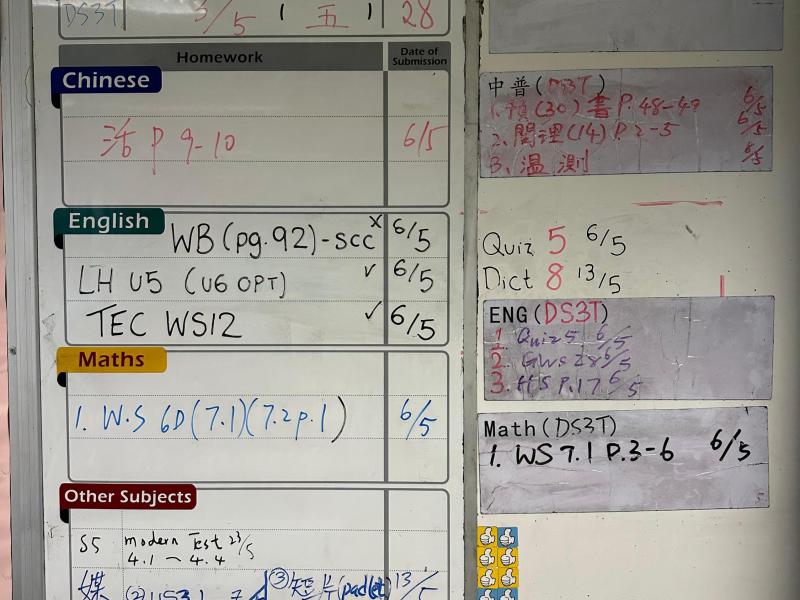 DS3T 3/5 (五) 28
Homework Date of Submission
Chinese
P 9-10 6/5
English
WB (pg.92)-scc x 6/5
LH U5 (U6 OPT) ✓ 6/5
TEC WS12 ✓ 6/5
Maths
1. W.S 6D(7.1)(7.2p.1) 6/5
Other Subjects
S5 modern Test 23/5
4.1 ~ 4.4
媒 ③短片(padlet) 13/5
中普(DS3T)
1. (30) 書 P.48-49 6/5
2. 閱理(14) P.2-5 6/5
3. 溫測
Quiz 5 6/5
Dict 8 13/5
ENG(DS3T)
1. Quiz 5 6/5
2. GWS 28 6/5
3. HS P.17 6/5
Math(DS3T)
1. WS 7.1 P.3-6 6/5